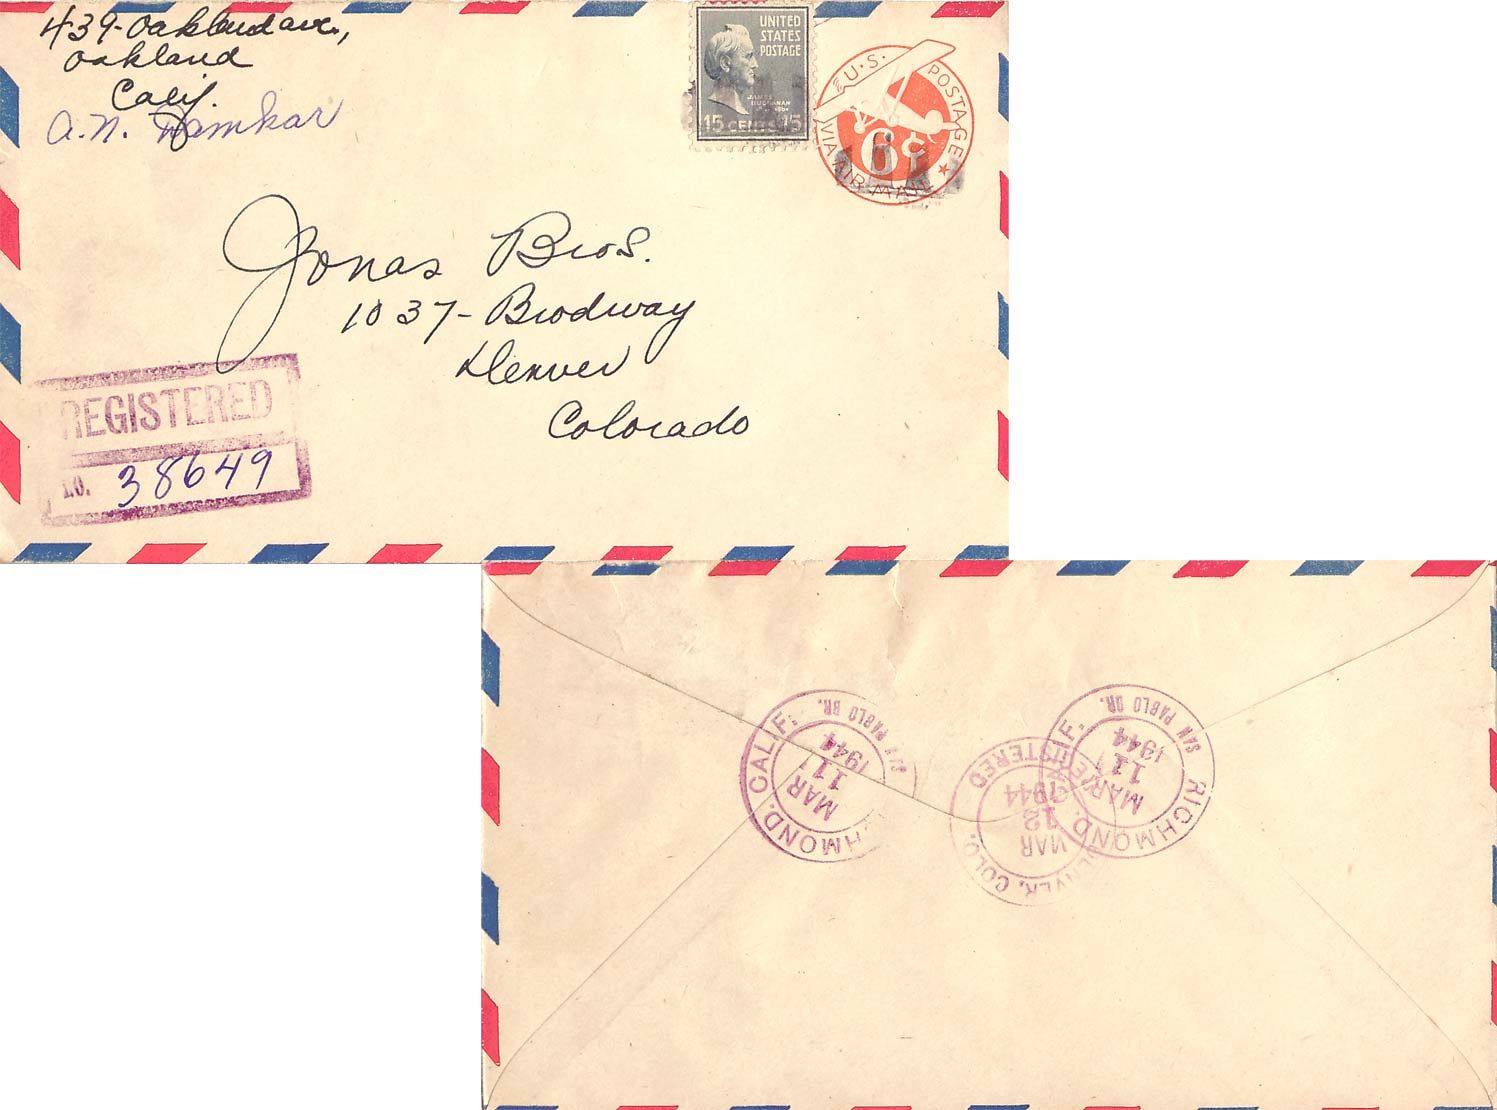 439-Oakland ave.,
Oakland
Calif.
a.n. Damkar
UNITED
STATES
POSTAGE
JAMES
BUCHANAN
15 CENTS 15
U.S. POSTAGE
6¢
VIA AIR MAIL
Jonas Bros.
1037- Brodway
Denver
Colorado
REGISTERED
NO. 38649
RICHMOND, CALIF.
SAN PABLO BR.
MAR
11
1944
DENVER, COLO.
REGISTERED
MAR
12
1944
RICHMOND, CALIF.
SAN PABLO BR.
MAR
11
1944